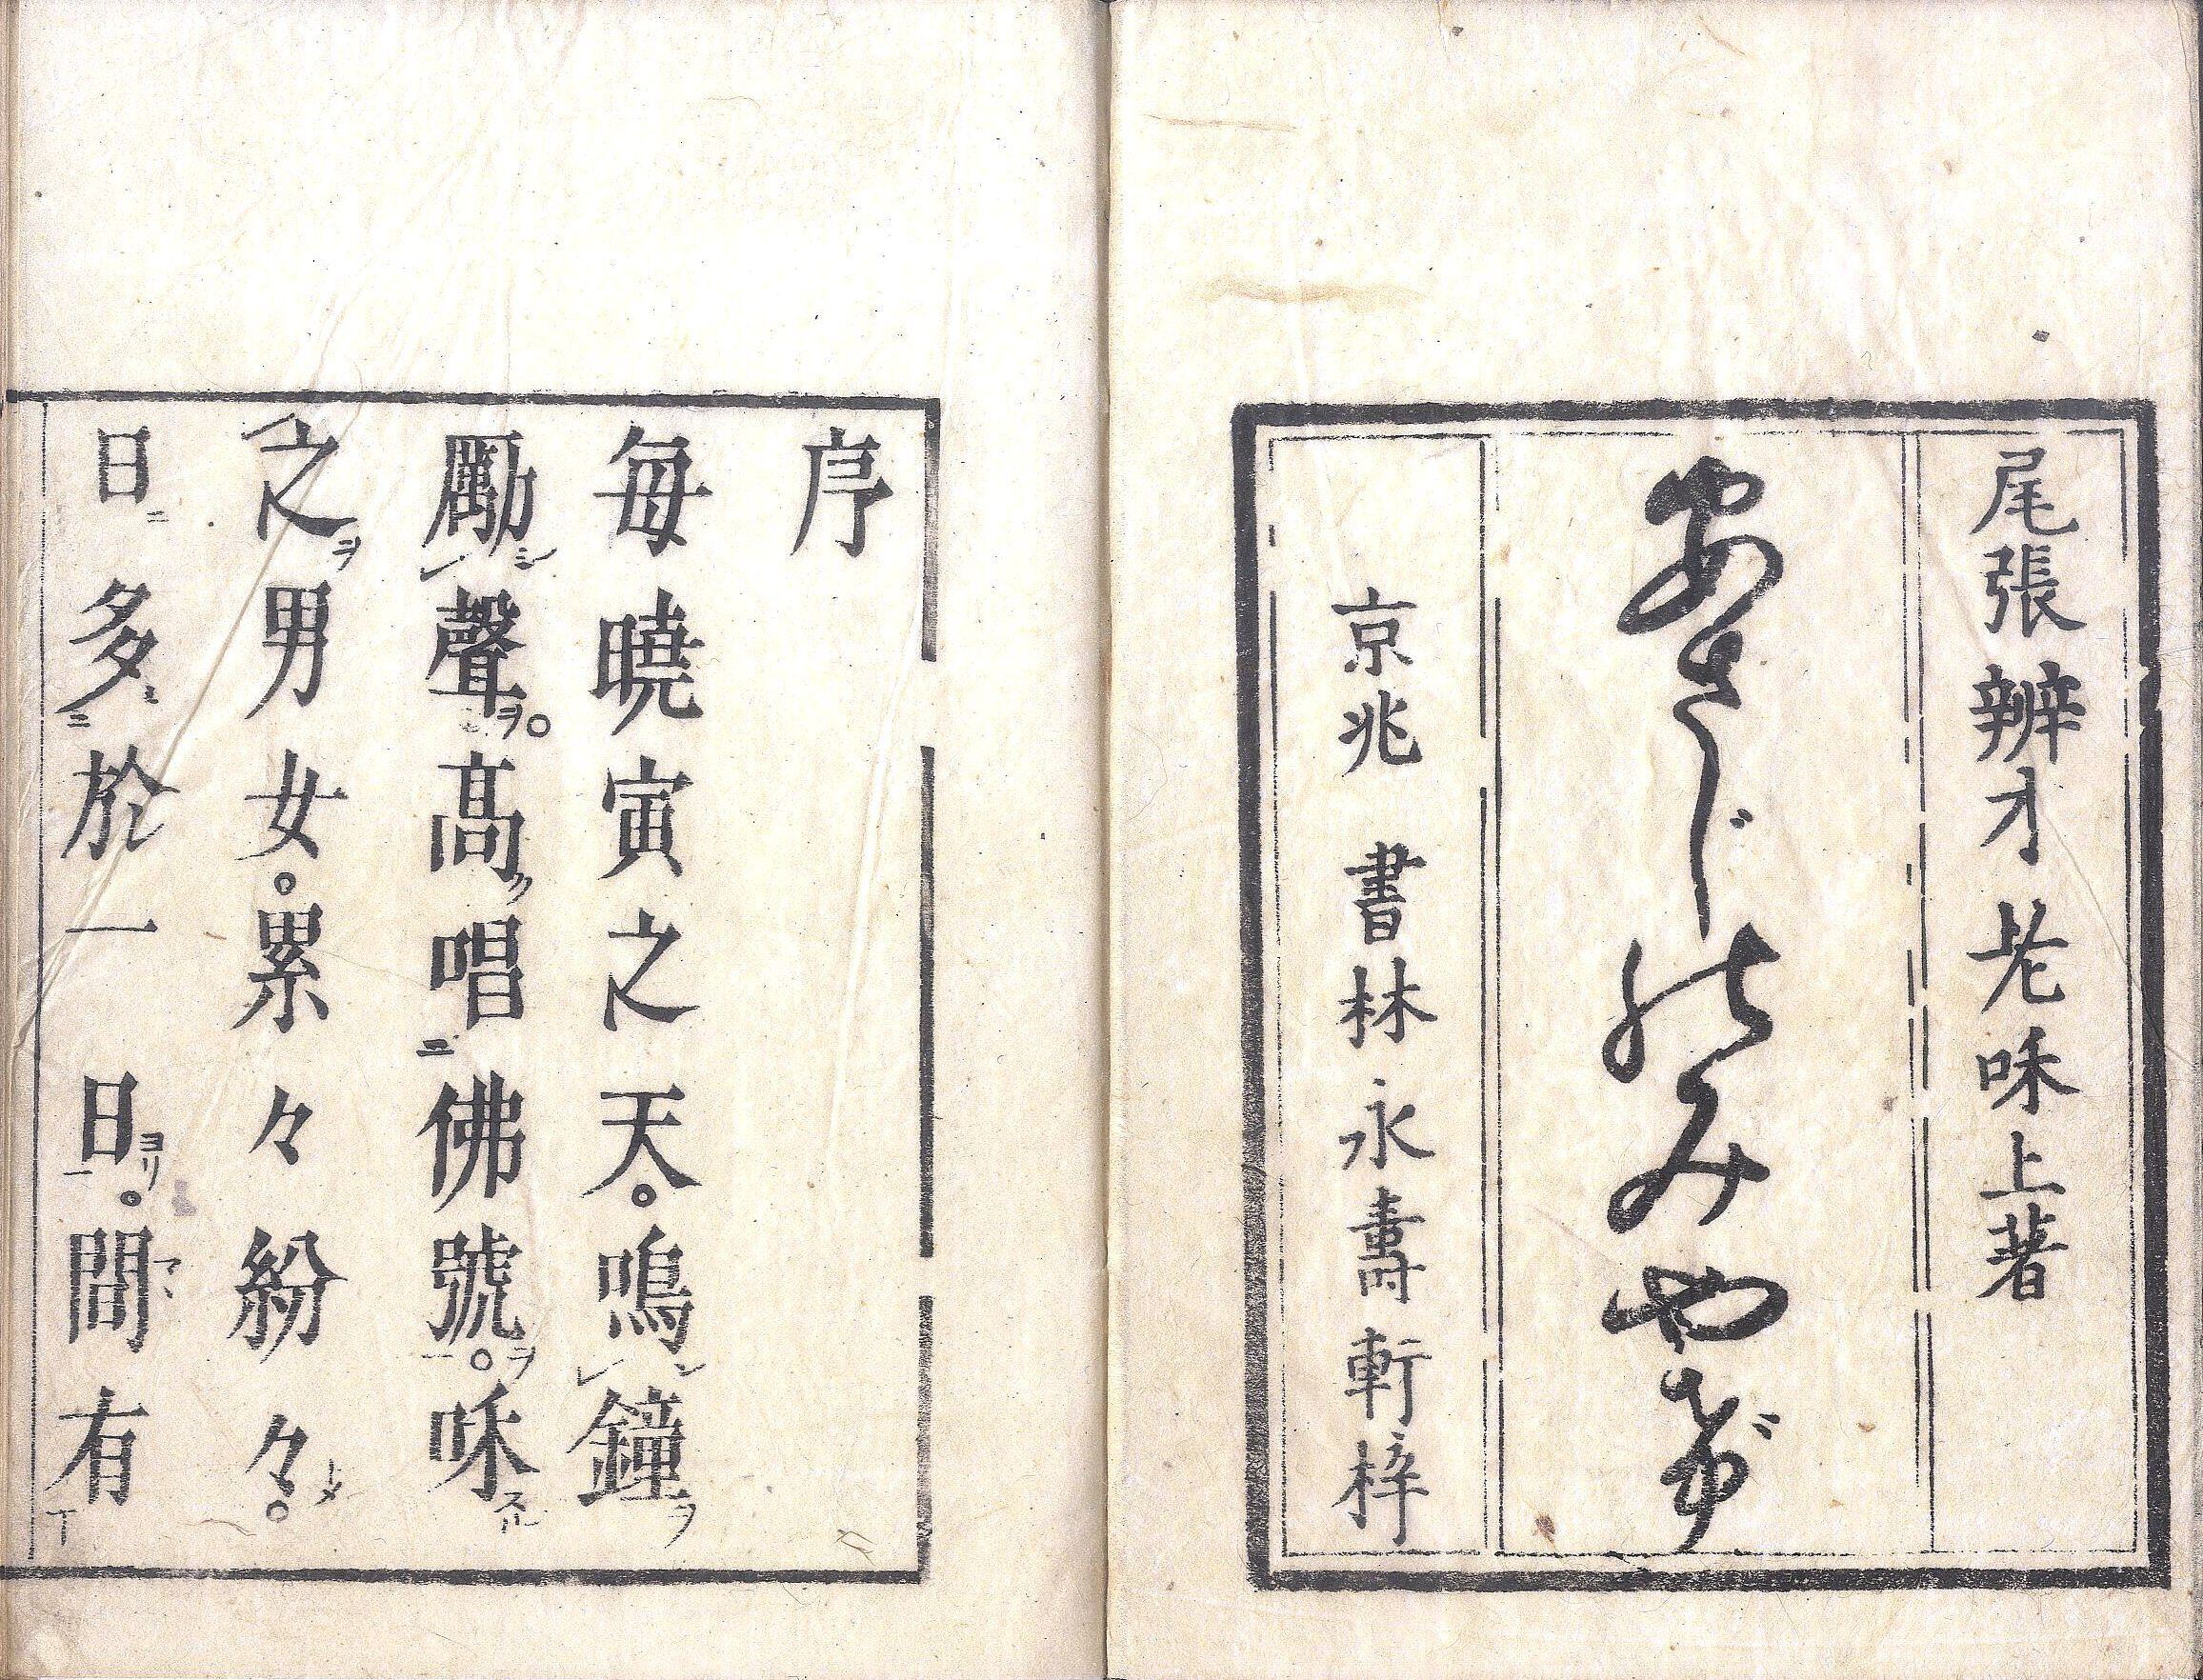 尾張辨才老咊上著
あさぢのみやげ
京兆 書林永壽軒梓
序
每曉寅之天。鳴鐘
勵聲。高唱佛號。咊
之男女。累々紛々。
日多於一日。間有